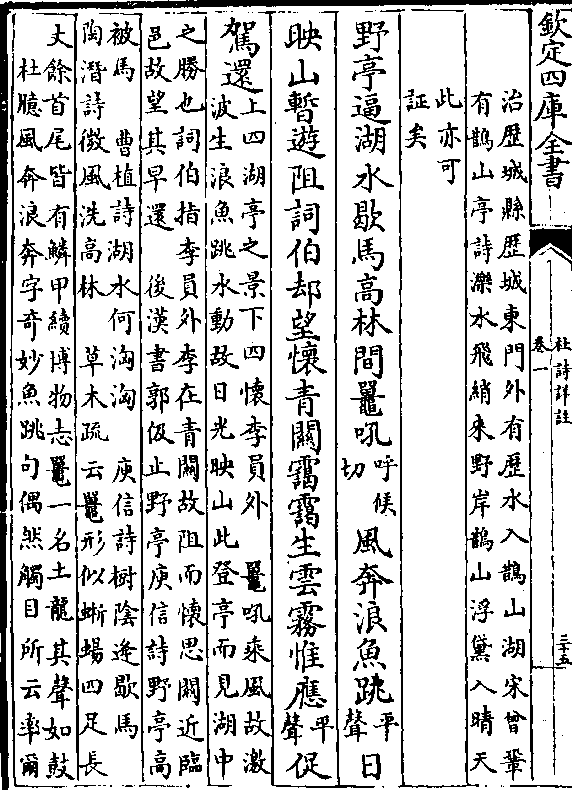 欽定四庫全書
杜詩詳註
卷一
三十五
治歷城縣歷城東門外有歷水入鵲山湖宋曾鞏
有鵲山亭詩濼水飛綃來野岸鵲山浮黛入晴天
此亦可
証矣
野亭逼湖水歇馬高林間鼉吼呼候切風奔浪魚跳平聲日
映山暫遊阻詞伯却望懷青關靄靄生雲霧惟應平聲促
駕還
上四湖亭之景下四懷李員外 鼉吼乘風故激
波生浪魚跳水動故日光映山此登亭而見湖中
之勝也詞伯指李員外李在青關故阻而懷思關近臨
邑故望其早還 後漢書郭伋止野亭庾信詩野亭高
被馬 曹植詩湖水何洶洶 庾信詩樹陰逢歇馬
陶潛詩微風洗高林 草木疏云鼉形似蜥蜴四足長
丈餘首尾皆有鱗甲續博物志鼉一名土龍其聲如鼓
杜臆風奔浪奔字奇妙魚跳句偶然觸目所云率爾